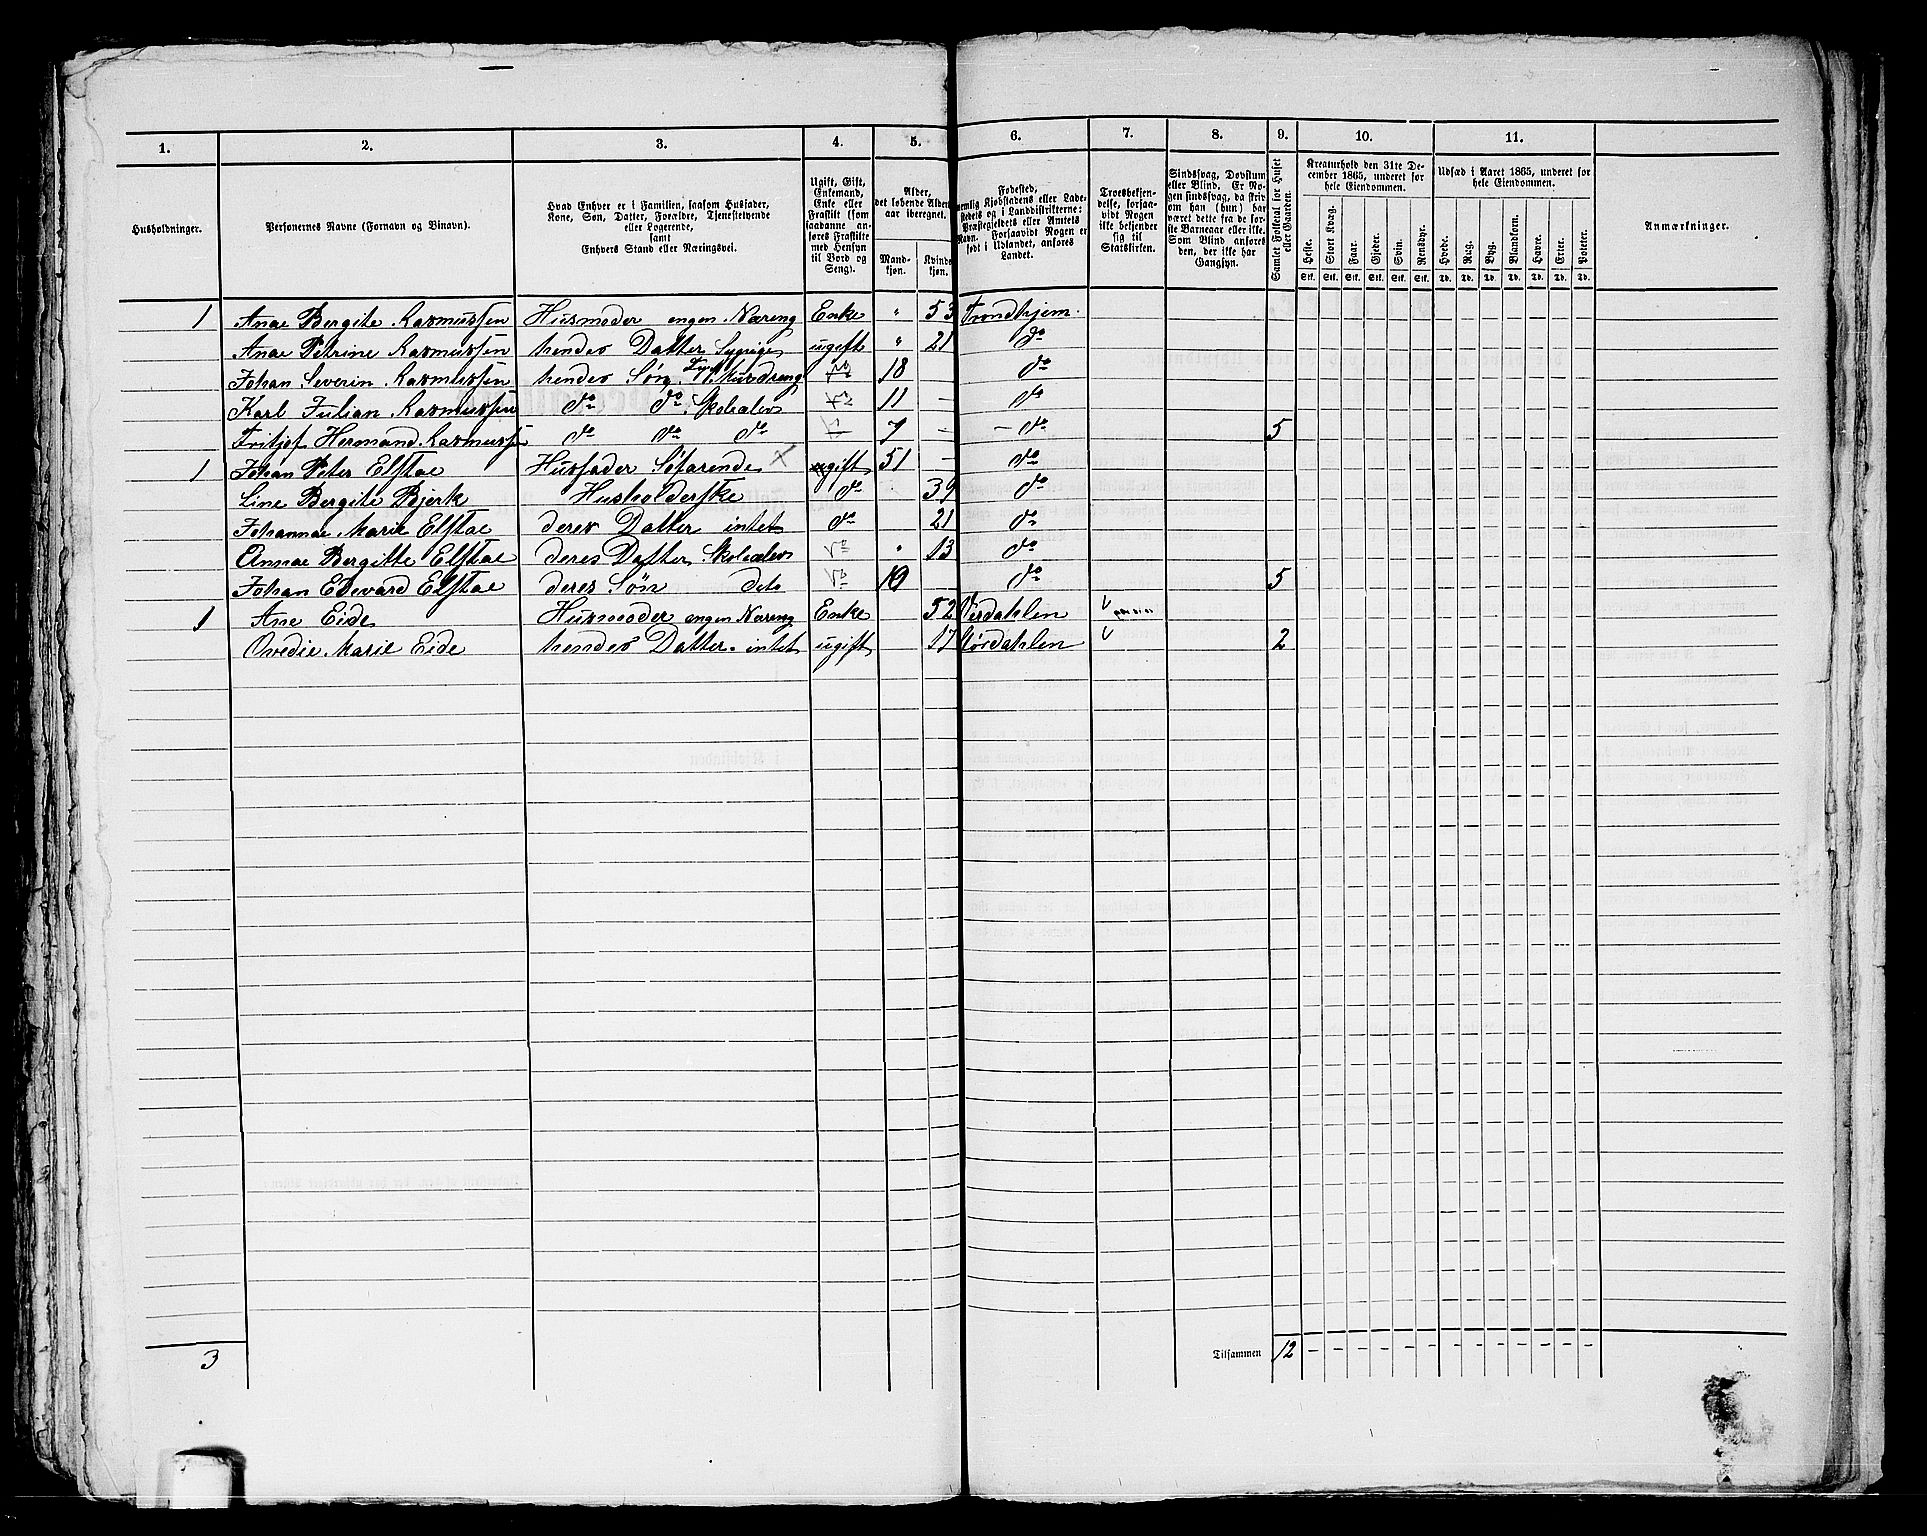 1. 2. 3. 4. 5. 6. 7. 8. 9. 10. 11.
Husholdninger.
Personernes Navne (Fornavn og Tilnavn).
Hvad Enhver er i Familien, saasom Husfader,
Kone, Søn, Datter, Forældre, Tjenestetyende
eller Logerende,
samt
Enhvers Stand eller Næringsvei.
Ugift, Gift,
Enkemand,
Enke eller
Fraskilt (som
saadanne an-
føres Fraskilte
med Hensyn
til Bord og
Seng).
Alder,
det løbende Alders-
aar iberegnet.
Mand-
kjøn.
Kvinde-
kjøn.
Fødested,
nemlig Kjøbstadens eller Lade-
stedets og i Landdistrikterne:
Præstegjeldets eller Amtets
Navn. Forsaavidt Nogen er
født i Udlandet, anføres
Landet.
Troesbekjen-
delse, forsaa-
vidt Nogen
ikke bekjender
sig til
Statskirken.
Sindssvag, Døvstum
eller Blind. Er No-
gen sindssvag, da skriv
om han (hun) har
været dette fra de før-
ste Barneaar eller ikke.
Som Blind anføres
den, der ikke har
Gangsyn.
Samlet Folketal for Huset
eller Gaarden.
Kreaturhold den 31te De-
cember 1865, underet for
hele Eiendommen.
Heste. Stort Kvæg. Faar. Gjeder. Svin. Rensdyr.
Stk. Stk. Stk. Stk. Stk. Stk.
Udsæd i Aaret 1865, underet for
hele Eiendommen.
Hvede. Rug. Byg. Blandkorn. Havre. Erter. Poteter.
Td. Td. Td. Td. Td. Td. Td.
Anmærkninger.
1 Anae Bergite Rasmussen Husmoder engen Næreng Enke " 53 Trondhjem.
Anae Petrine Rasmussen hendes Datter Sypige ugift " 21 do
Johan Severin Rasmussen hendes Søn Murdreng do 18 do
Karl Julian Rasmussen do do Skoleelev do 11 — do
Fritjof Hermand Rasmussen do do do 7 — — do 5
1 Johan Peter Elstae Husfader Søfarende ugift 51 — do
Line Bergite Bjerk Husholderske do 39 do
Johannae Marie Elstae deres Datter intet do 21 do
Annae Bergitte Elstae deres Datter Skoleelev do " 13 do
Johan Edevard Elstae deres Søn deto do 10 do 5
1 Ane Eide Husmoder engen Næreng Enke 52 Verdahlen
Ovedie Marie Eide hendes Datter intet ugift 17 Størdahlen 2
3 Tilsammen 12 — — — — — — — — — — — — —